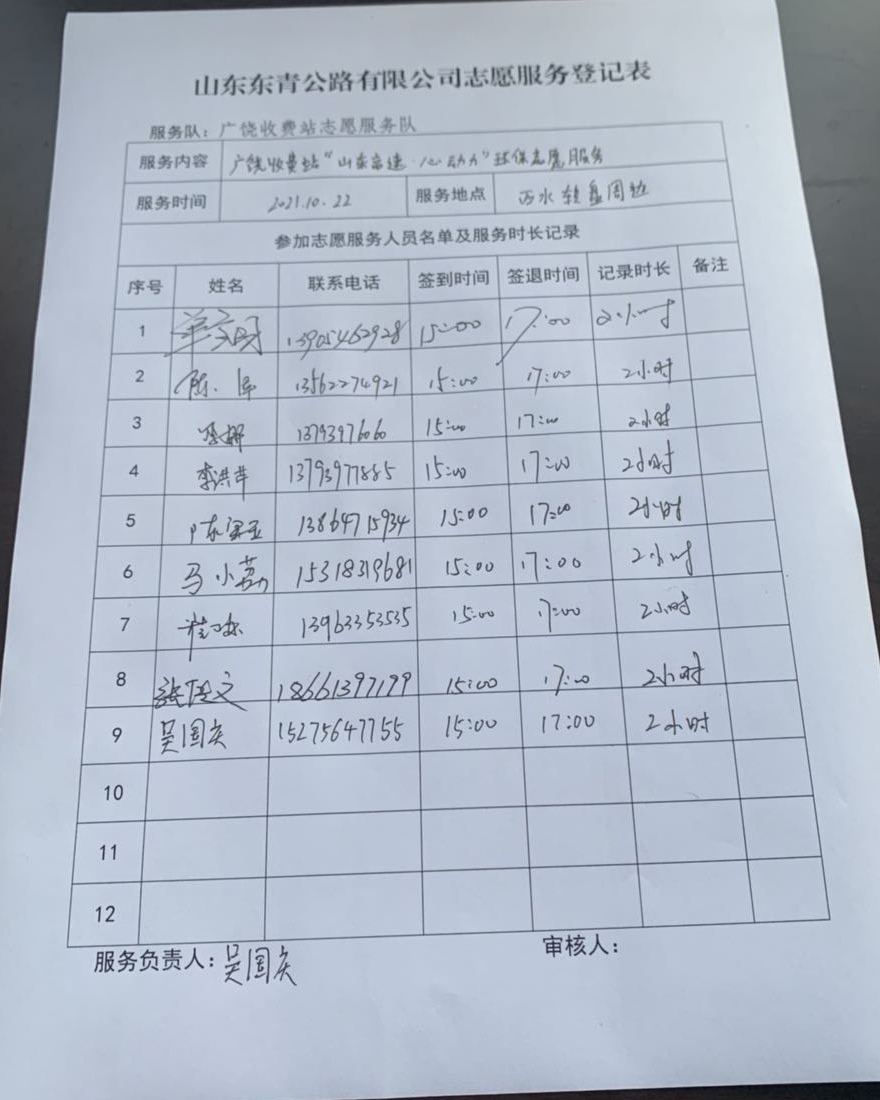 山东东青公路有限公司志愿服务登记表
服务队：广饶收费站志愿服务队
服务内容 广饶收费站“山东高速·心动力”环保志愿服务
服务时间 2021.10.22 服务地点 西水转盘周边
参加志愿服务人员名单及服务时长记录
序号 姓名 联系电话 签到时间 签退时间 记录时长 备注
1 13905462928 15:00 17:00 2小时
2 陈 13562274921 15:00 17:00 2小时
3 13793976060 15:00 17:00 2小时
4 李洪苹 13793977885 15:00 17:00 2小时
5 陈 13864715934 15:00 17:00 2小时
6 马小荔 15318319681 15:00 17:00 2小时
7 13963353535 15:00 17:00 2小时
8 张 文 18661397199 15:00 17:00 2小时
9 吴国 15275647755 15:00 17:00 2小时
10
11
12
服务负责人：吴国 审核人：